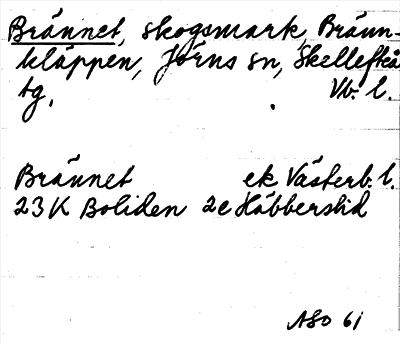 Brännet, skogsmark, Bränn-
kläppen, Jörns sn, Skellefteå
tg. Vb. l.
Brännet ek Västerb. l.
23K Boliden 2e Häbbersliden
ASO 61